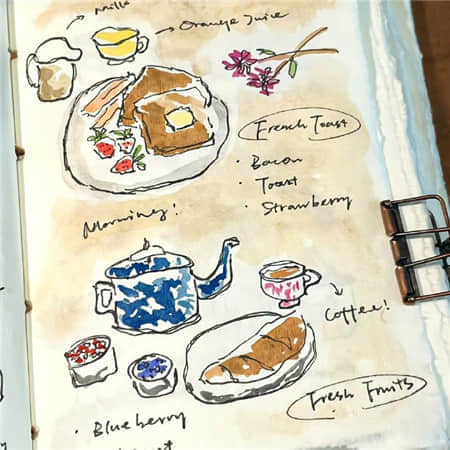 milk
Orange Juice
French Toast
· Bacon
· Toast
· Strawberry
Morning!
Coffee!
Fresh Fruits
· Blueberry